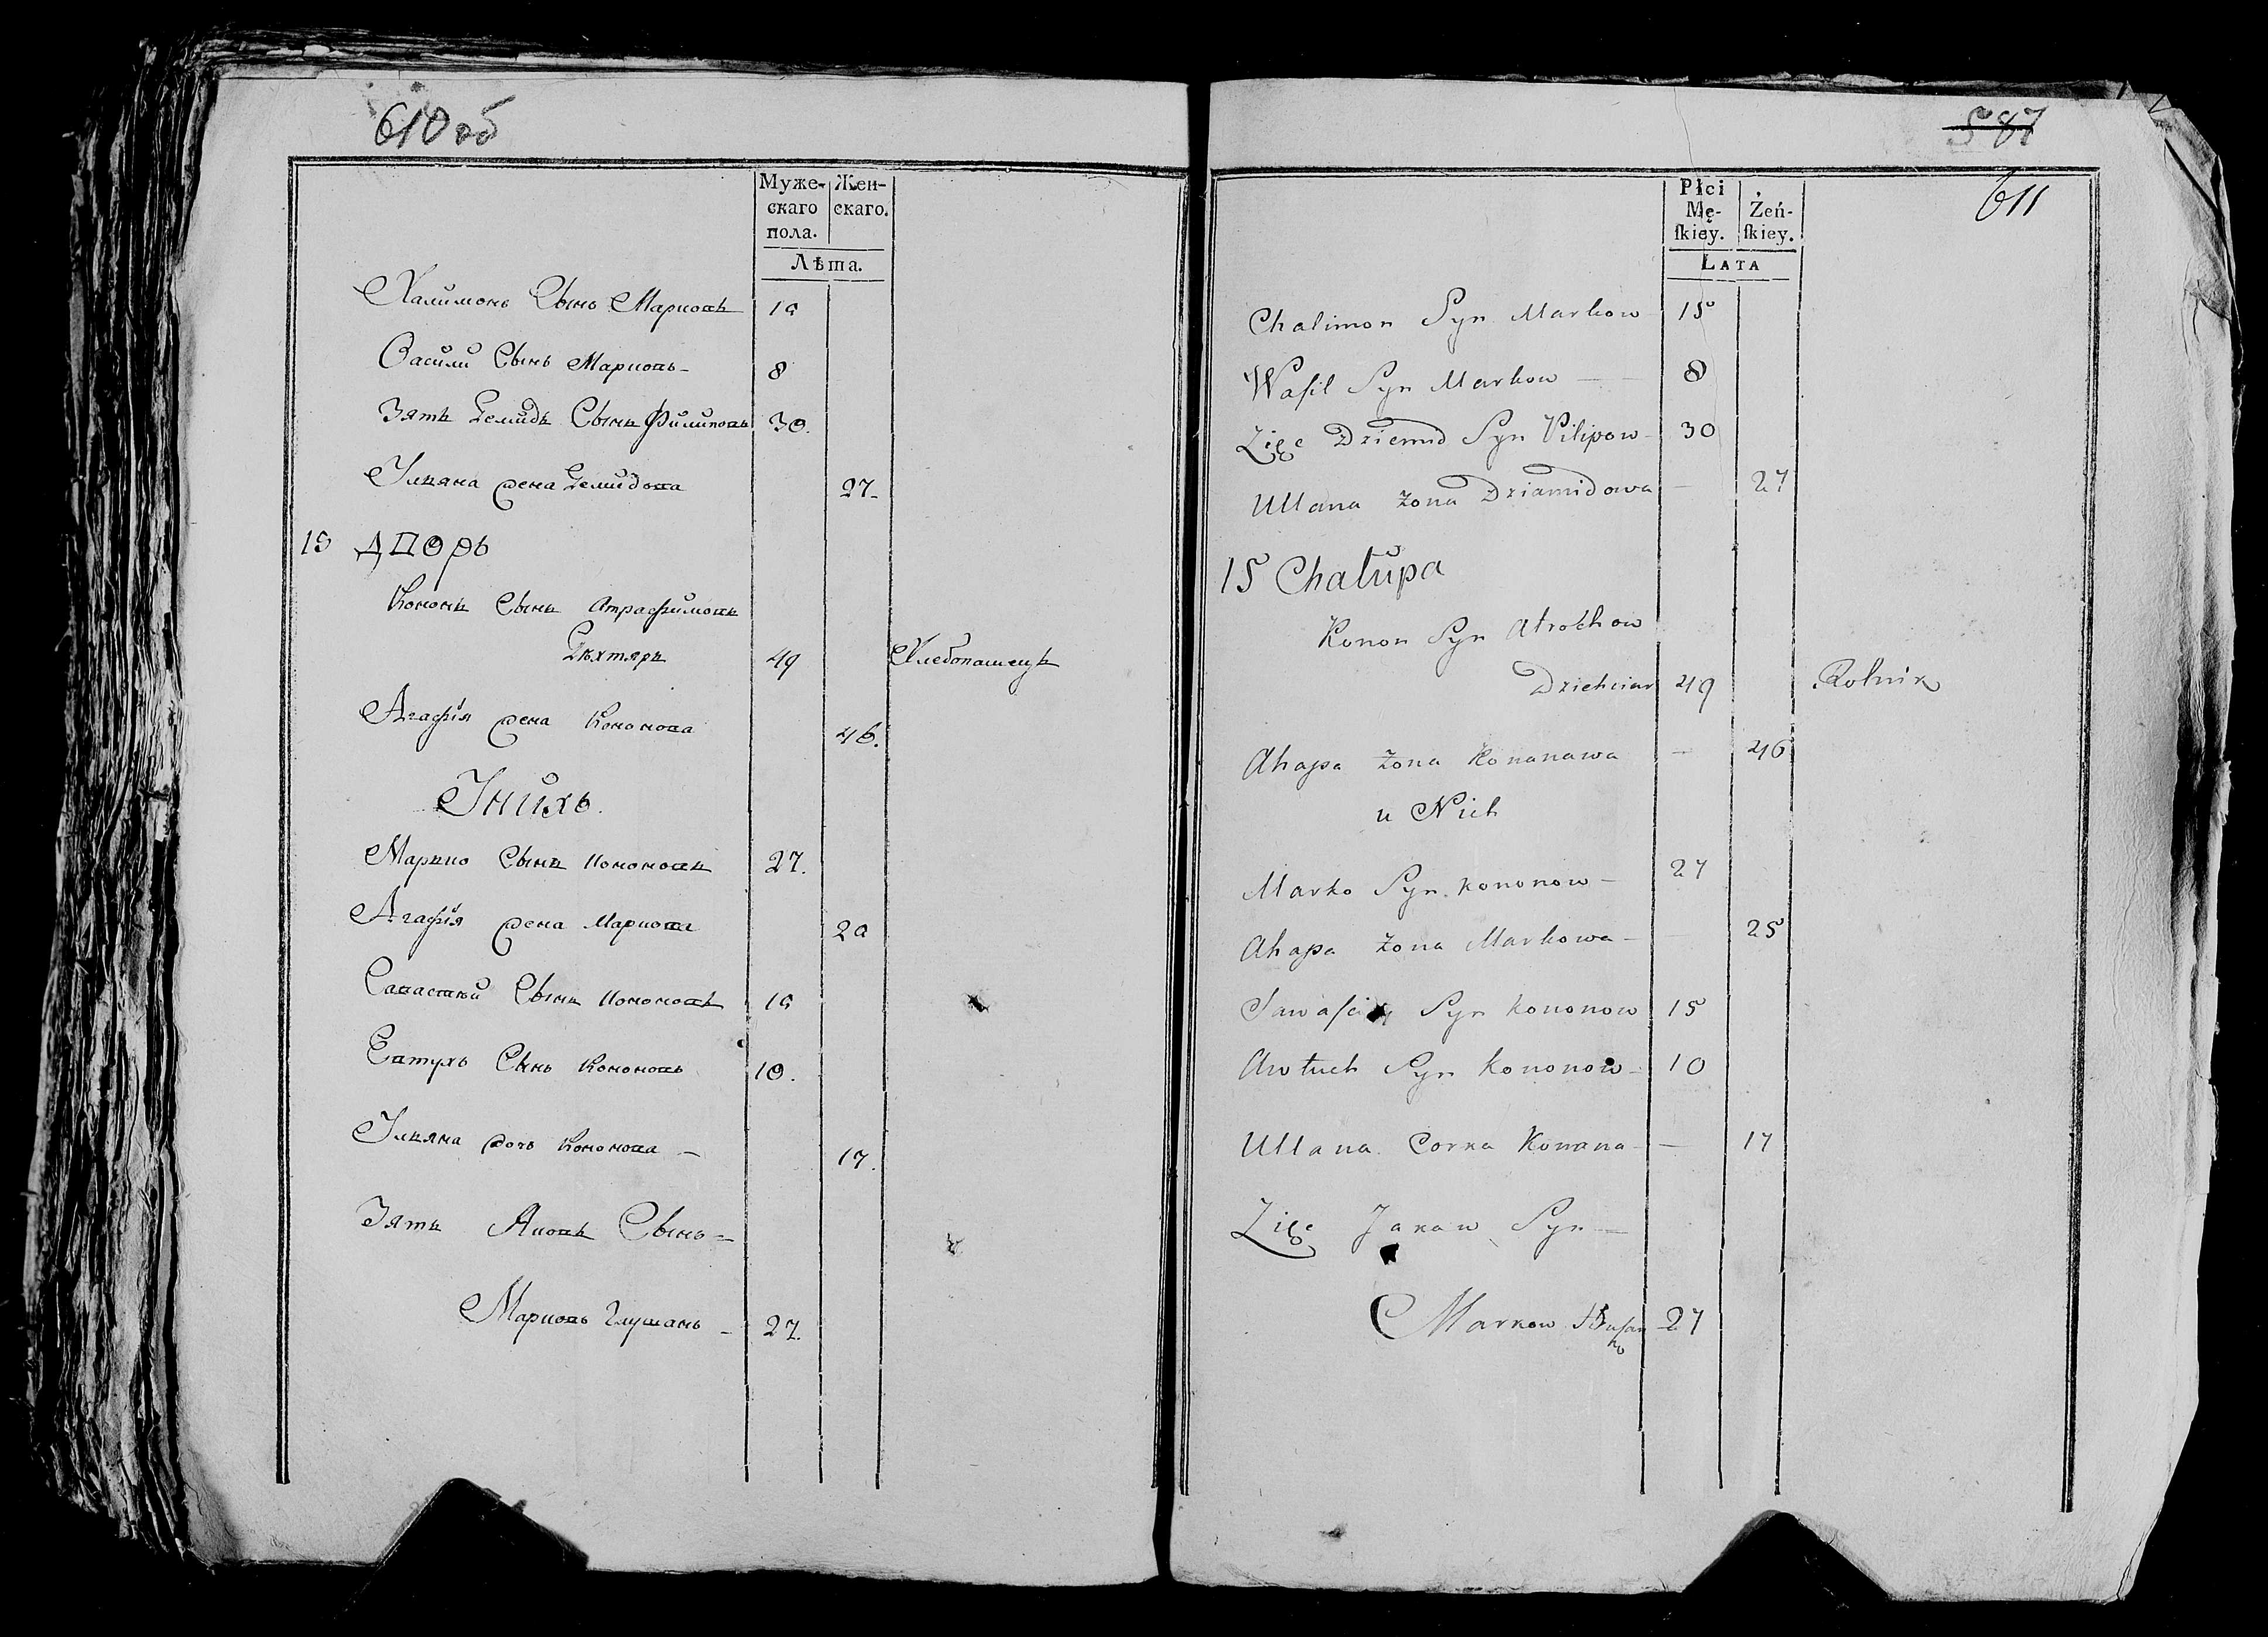 610об
Муже- Жен-
скаго скаго.
пола.
Лѣта.
Халимонъ Сынъ Марковъ 15
Васили Сынъ Марковъ - 8
Зять Демидъ Сынъ Филиповъ 30.
Ульяна жена Демидова 27.
15 Дворъ
Кононъ Сынъ Атрафимовъ
Дѣхтяръ 49 Хлебопашецъ
Агафія жена Кононова 46.
У нихъ.
Марько Сынъ Кононовъ 27.
Агафія жена Маркова 25
Савастѣй Сынъ Кононовъ 15
Евтухъ Сынъ Кононовъ 10.
Ульяна дочь Кононова - 17.
Зять Яковъ Сынъ =
Марковъ Глушань - 27.
587
611
Płci
Mę- Żeń-
ſkiey. ſkiey.
LATA
Chalimon Syn Markow 15
Waſil Syn Markow - - 8
Zięc Dziemid Syn Pilipow - 30
Ullana Żona Dziamidowa - 27
15 Chałupa
Konon Syn Atrochow
Dziehciar 49 Rolnik
Ahapa Żona Kononawa - 46
u Nich
Marko Syn kononow - 27
Ahapa Żona Markowa - - 25
Syn kononow 15
Awtuch Syn Kononow - 10
Ullana Corka Konona - - 17
Zięc Jakaw Syn -
Markow 27